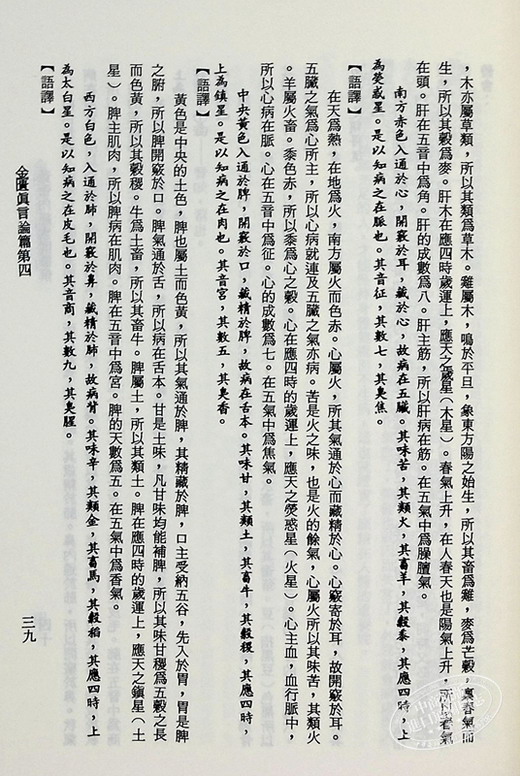 ，木亦屬草類，所以其類爲草木。雞屬木，鳴於平旦，象東方陽之始生，所以其畜爲雞，麥爲芒穀，稟春氣而
生，所以其穀爲麥。肝木在應四時歲運上，應天之歲星（木星）。春氣上升，在人春天也是陽氣上升，所以春氣
在頭。肝在五音中爲角。肝的成數爲八。肝主筋，所以肝病在筋。在五氣中爲臊膻氣。
南方赤色入通於心，開竅於耳，藏於心，故病在五臟。其味苦，其類火，其畜羊，其穀黍，其應四時，上
為熒惑星。是以知病之在脈也。其音征，其數七，其臭焦。
【語譯】
在天爲熱，在地爲火，南方屬火而色赤。心屬火，所其氣通於心而藏精於心。心竅寄於耳，故開竅於耳。
五臟之氣爲心所主，所以心病就連及五臟之氣亦病。苦是火之味，也是火的餘氣，心屬火所以其味苦，其類火
。羊屬火畜。黍色赤，所以黍爲心之穀。心在應四時的歲運上，應天之熒惑星（火星）。心主血，血行脈中，
所以心病在脈。心在五音中爲征。心的成數爲七。在五氣中爲焦氣。
中央黃色入通於脾，開竅於口，藏精於脾，故病在舌本。其味甘，其類土，其畜牛，其穀稷，其應四時，
上為鎮星。是以知病之在肉也。其音宮，其數五，其臭香。
【語譯】
黃色是中央的土色，脾也屬土而色黃，所以其氣通於脾，其精藏於脾，口主受納五谷，先入於胃，胃是脾
之腑，所以脾開竅於口。脾氣通於舌，所以病在舌本。甘是土味，凡甘味均能補脾，所以其味甘稷爲五穀之長
而色黃，所以其穀稷。牛爲土畜，所以其畜牛。脾屬土，所以其類土。脾在應四時的歲運上，應天之鎭星（土
星）。脾主肌肉，所以脾病在肌肉。脾在五音中爲宮。脾的天數爲五。在五氣中爲香氣。
西方白色，入通於肺，開竅於鼻，藏精於肺，故病背。其味辛，其類金，其畜馬，其穀稻，其應四時，上
為太白星。是以知病之在皮毛也。其音商，其數九，其臭腥。
【語譯】
金匱眞言論篇第四
三九